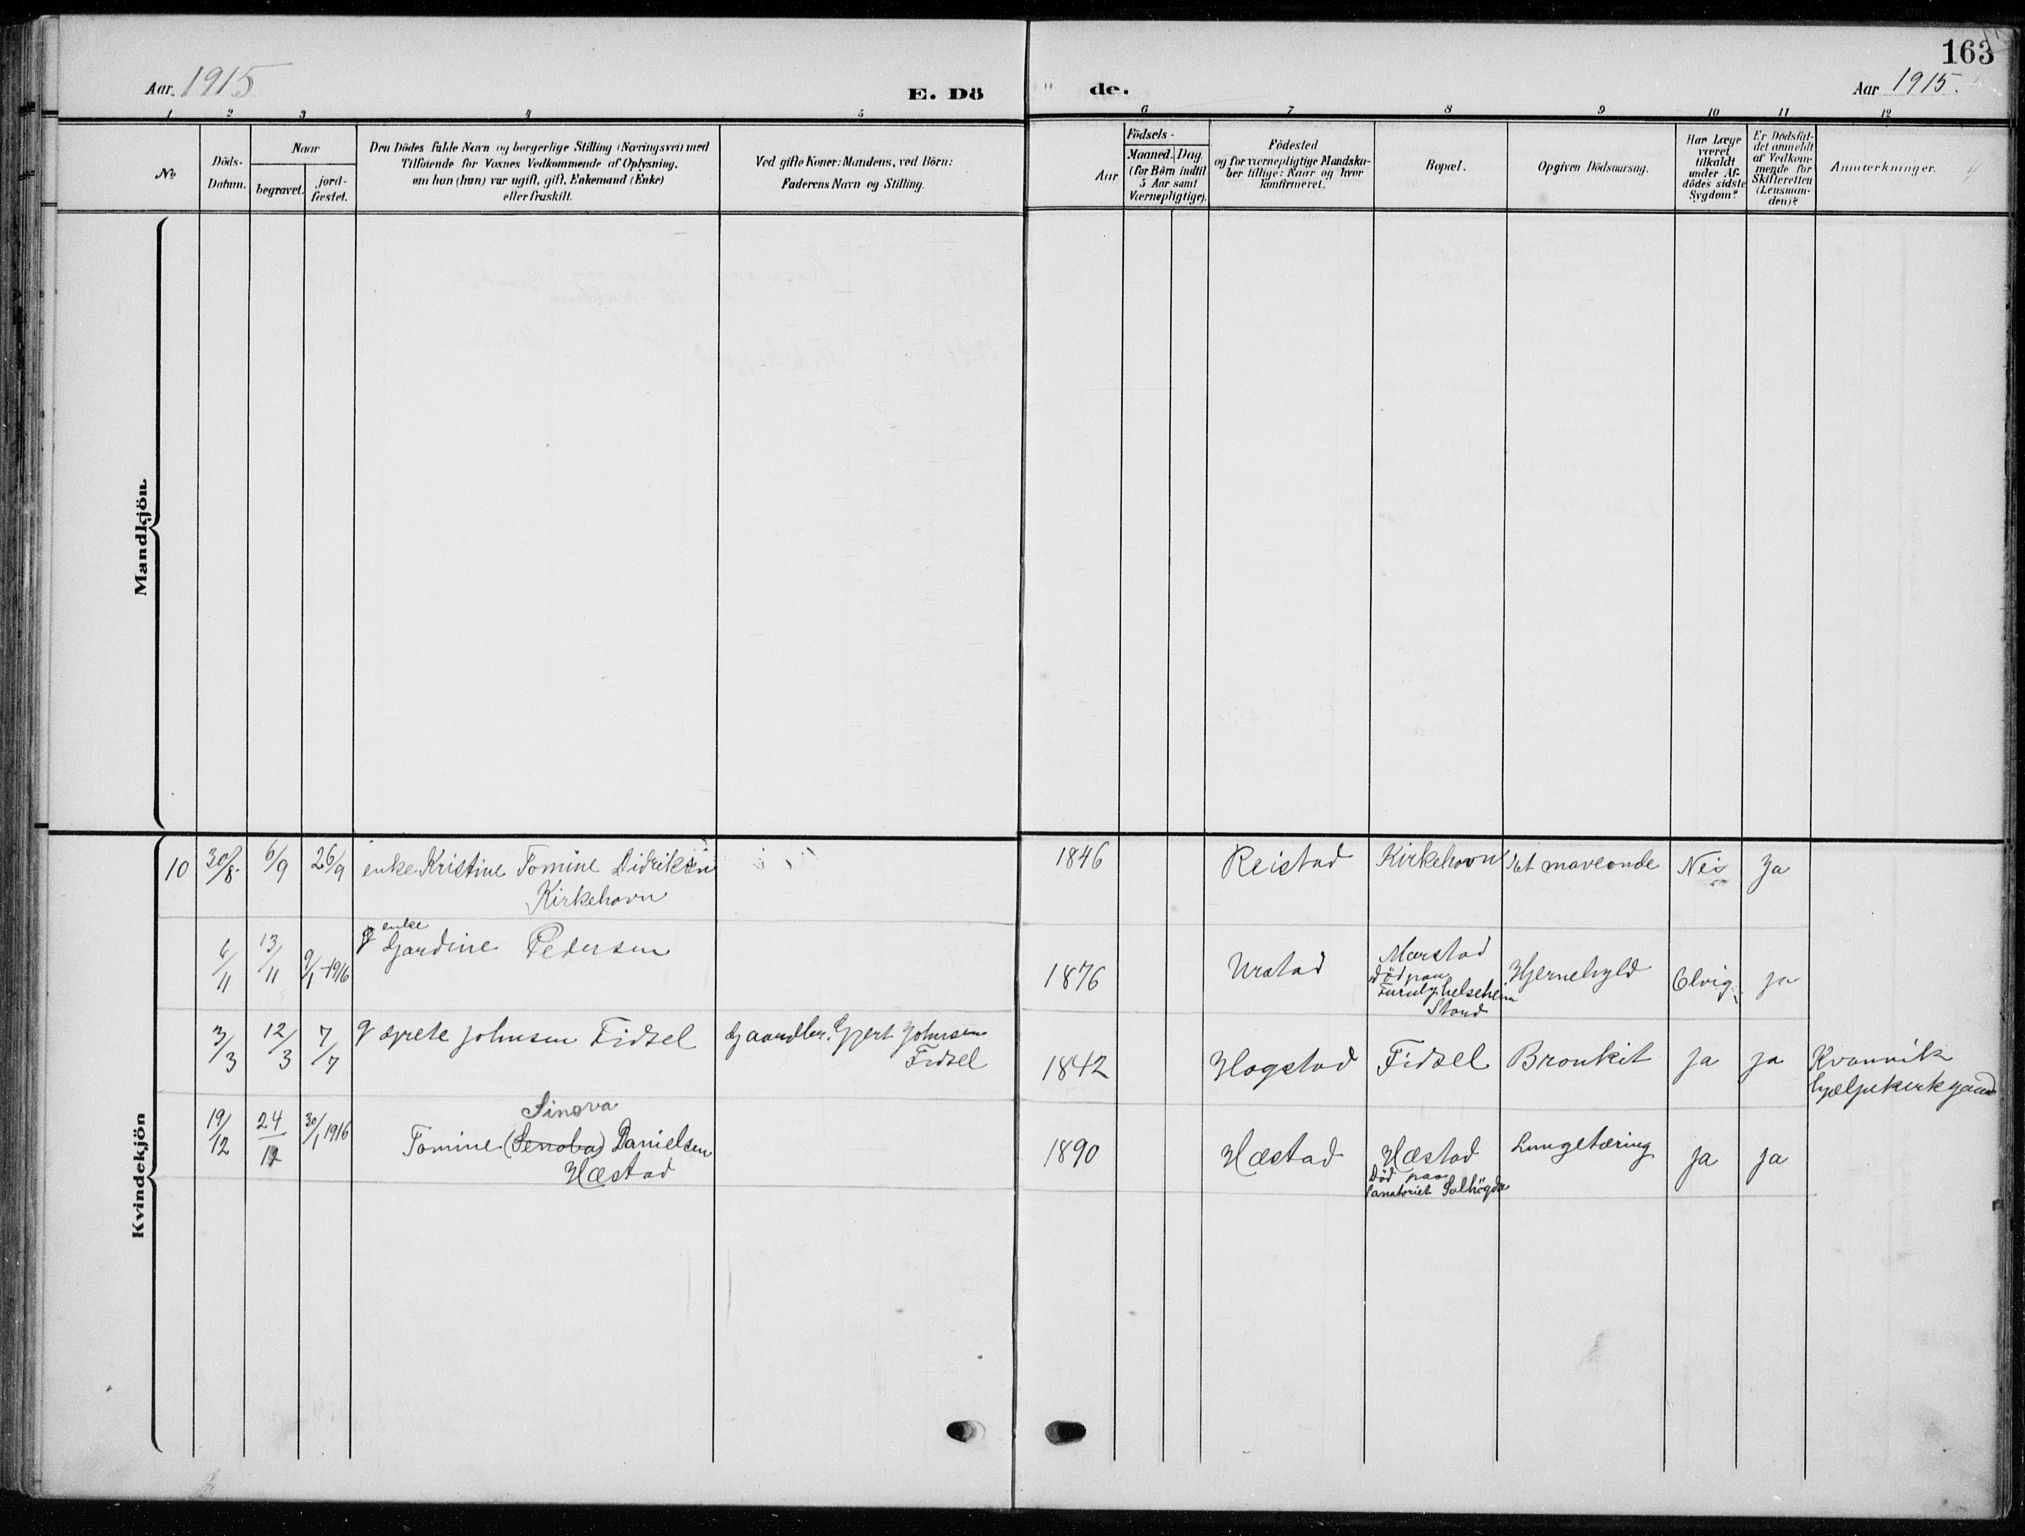 163
Aar. 1915
E. Dö
de.
Aar 1915.
1 2 3 4 5 6 7 8 9 10 11 12
No
Döds-
Datum.
Naar
begravet.
jord-
fæstet.
Den Dödes fulde Navn og borgerlige Stilling (Næringsvei) med
Tilföiende for Voxnes Vedkommende af Oplysning,
om han (hun) var ugift, gift, Enkemand (Enke)
eller fraskilt.
Ved gifte Koner: Mandens, ved Börn:
Faderens Navn og Stilling.
Födsels-
Aar
Maaned. Dag.
(for Börn indtil
5 Aar samt
Værnepligtige).
Födested
og for værnepligtige Mandska-
ber tillige: Naar og hvor
konfirmeret.
Bopæl.
Opgiven Dödsaarsag.
Har Læge
været
tilkaldt
under Af-
dödes sidste
Sygdom?
Er Dödsfal-
det anmeldt
af Vedkom-
mende for
Skifteretten
(Lensman-
den)?
Anmærkninger.
Mandkjön.
Kvindekjön
10 30/8 6/9 26/9 enke Kristine Tomine Didriksen 1846 Reistad Kirkehavn det maveonde Nei Ja
Kirkehavn
enke
6/11 13/11 9/1-1916 Gjardine Pedersen 1876 Urstad Marstad Hjernehyld Olvig ja
död paa
Furuly helseheim
Stord
3/3 12/3 7/7 g Sprete Johnsen Fidsel Gaardbr. Gjert Johnsen 1842 Hogstad Fidsel Bronkit ja ja Kvannvik
Fidsel
hjælpekirkgaard
Sinova
19/12 24/12 30/1 1916 Tomine (Senoba) Danielsen 1890 Hæstad Hæstad Lungetæring ja ja
Hæstad
Död paa
Sanatoriet Solhögda